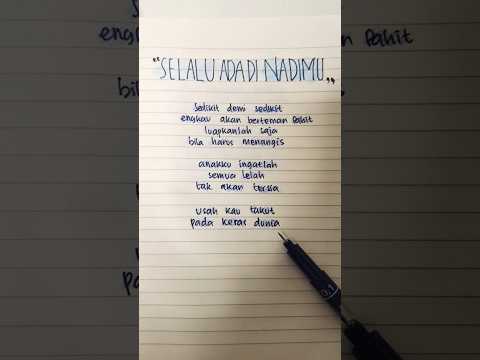 "SELALU ADA DI NADIMU"
sedikit demi sedikit
engkau akan berteman pahit
luapkanlah saja
bila harus menangis
anakku ingatlah
semua lelah
tak akan tersia
usah kau takut
pada keras dunia
0.1